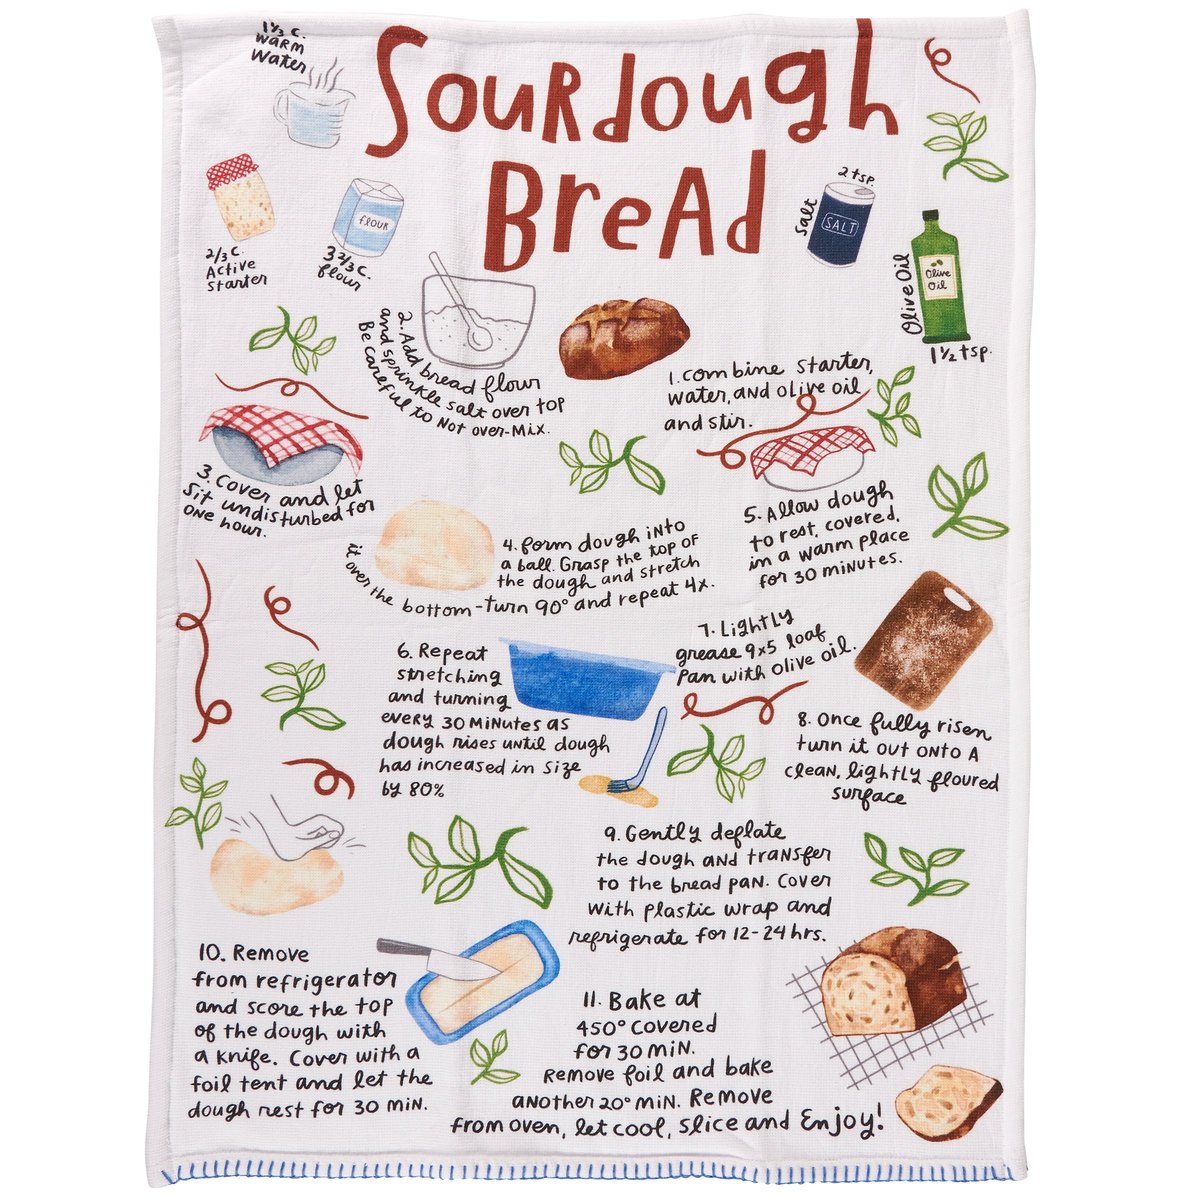 Sourdough
Bread
1 1/3 c.
warm
water
2/3 c.
Active
starter
flour
3 2/3 c.
flour
2 tsp.
salt
SALT
Olive Oil
Olive
Oil
1 1/2 tsp.
1. Combine starter,
water, and olive oil
and stir.
2. Add bread flour
and sprinkle salt over top
Be careful to Not over-mix.
3. Cover and let
sit undisturbed for
one hour.
4. Form dough into
a ball. Grasp the top of
the dough and stretch
it over the bottom - turn 90° and repeat 4x.
5. Allow dough
to rest, covered,
in a warm place
for 30 minutes.
6. Repeat
stretching
and turning
every 30 minutes as
dough rises until dough
has increased in size
by 80%
7. Lightly
grease 9x5 loaf
pan with olive oil.
8. Once fully risen
turn it out onto a
clean, lightly floured
surface
9. Gently deflate
the dough and transfer
to the bread pan. Cover
with plastic wrap and
refrigerate for 12-24 hrs.
10. Remove
from refrigerator
and score the top
of the dough with
a knife. Cover with a
foil tent and let the
dough rest for 30 min.
11. Bake at
450° covered
for 30 min.
Remove foil and bake
another 20° min. Remove
from oven, let cool, slice and Enjoy!